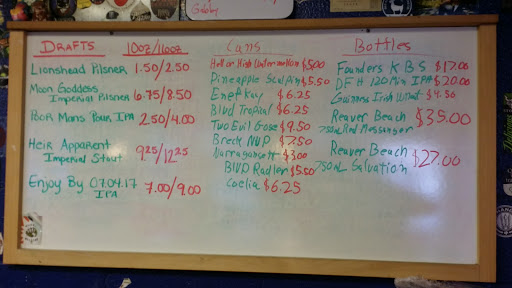 Gabby
DRAFTS 10oz/16oz
Lionshead Pilsner 1.50/2.50
Moon Goddess
Imperial Pilsner 6.75/8.50
Poor Mans Pour IPA 2.50/4.00
Heir Apparent
Imperial Stout 9.25/12.25
Enjoy By 07.04.17
IPA 7.00/9.00
Cans
Hell or High Watermelon $5.00
Pineapple Sculpin $5.50
$6.25
Blvd Tropical $6.25
Two Evil Gose $9.50
Breck NVP $7.50
Narragansett $3.00
BLVD Radler $5.50
Coelia $6.25
Bottles
Founders KBS $17.00
DFH 120 Min IPA $20.00
Guinness Irish Wheat $4.50
Reaver Beach $35.00
750mL Red Messenger
Reaver Beach $27.00
750mL Salvation